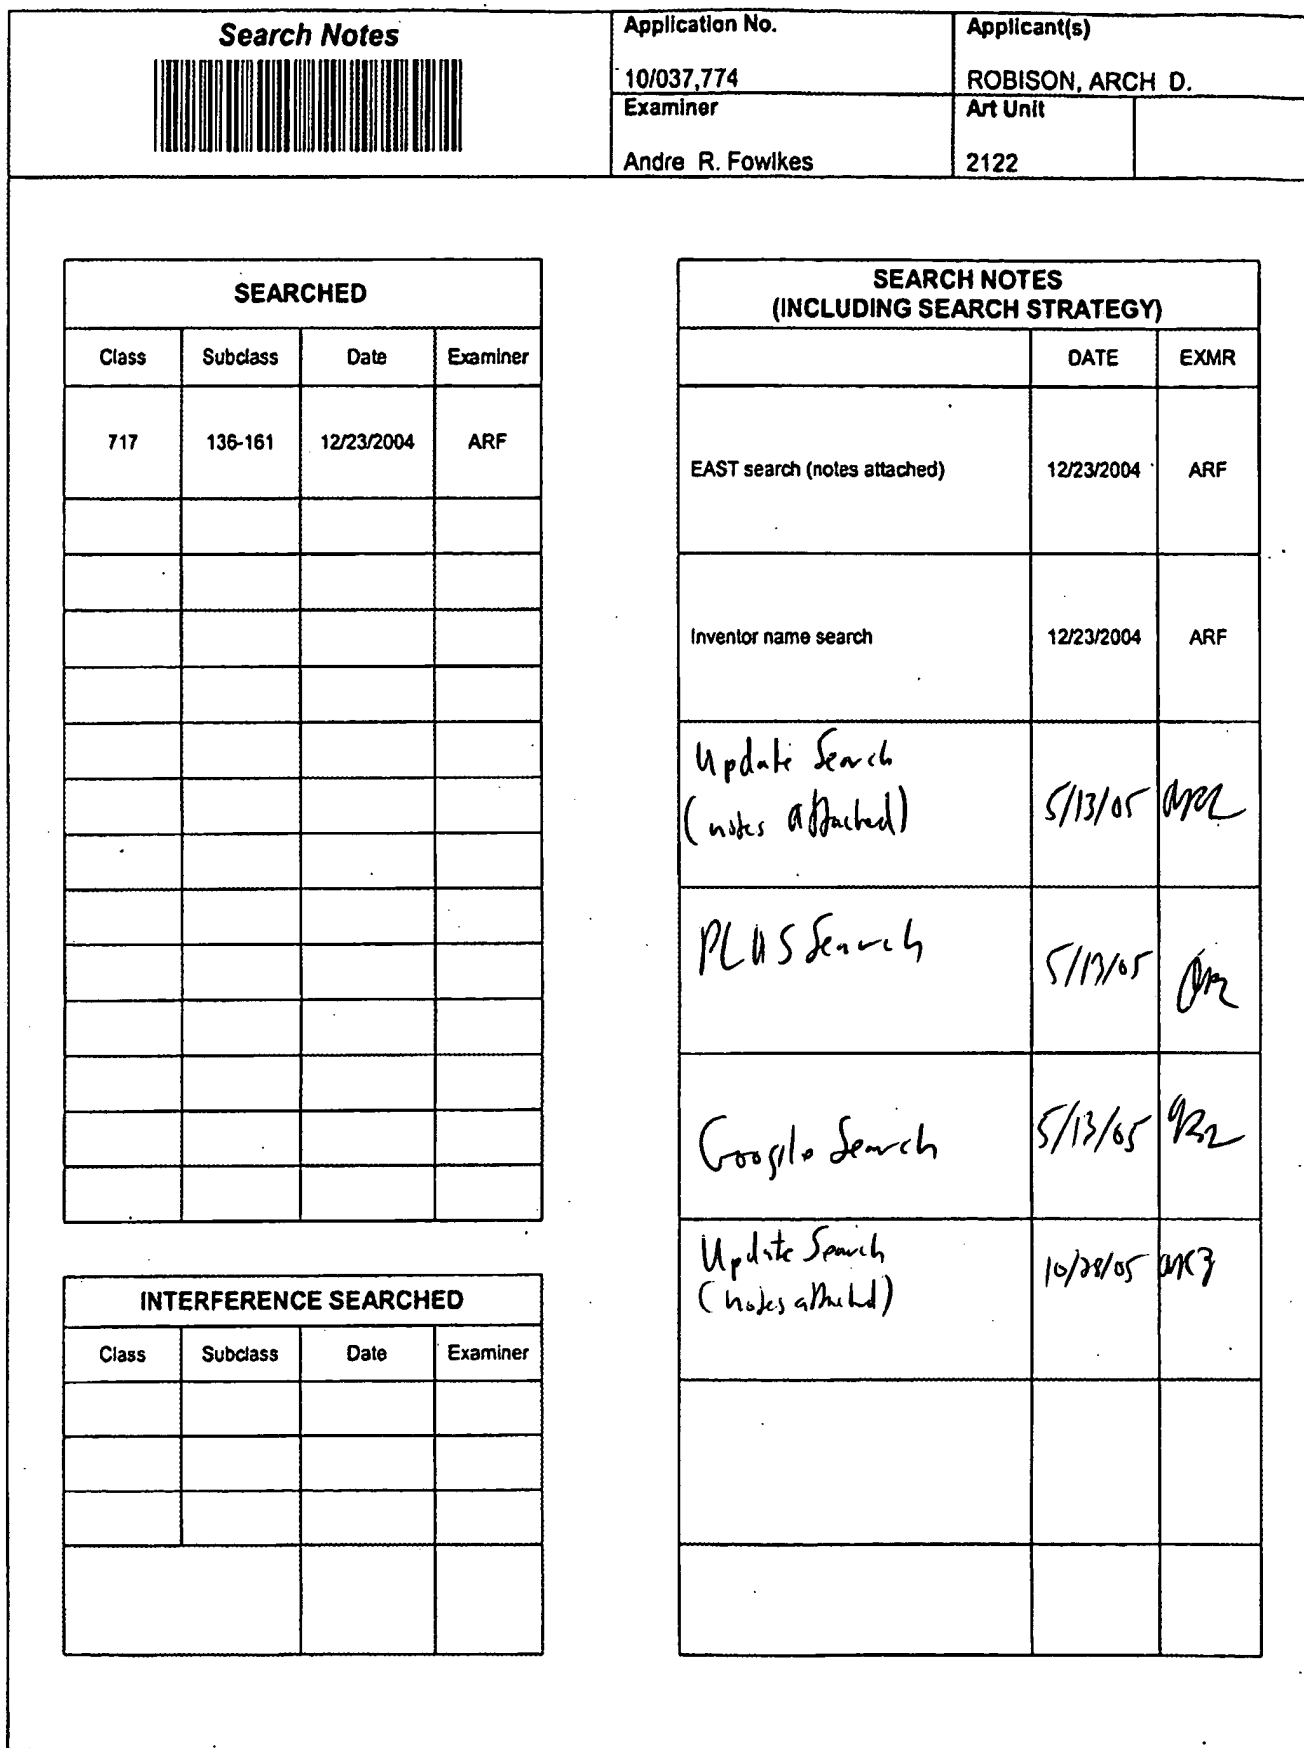 Search Notes
Application No.
10/037,774
Applicant(s)
ROBISON, ARCH D.
Examiner
Andre R. Fowlkes
Art Unit
2122
SEARCHED
Class Subclass Date Examiner
717 136-161 12/23/2004 ARF
INTERFERENCE SEARCHED
Class Subclass Date Examiner
SEARCH NOTES
(INCLUDING SEARCH STRATEGY)
DATE EXMR
EAST search (notes attached) 12/23/2004 ARF
Inventor name search 12/23/2004 ARF
Update Search
(notes attached) 5/13/05
PLUS Search 5/13/05
Google Search 5/13/05
Update Search
(notes attached) 10/28/05